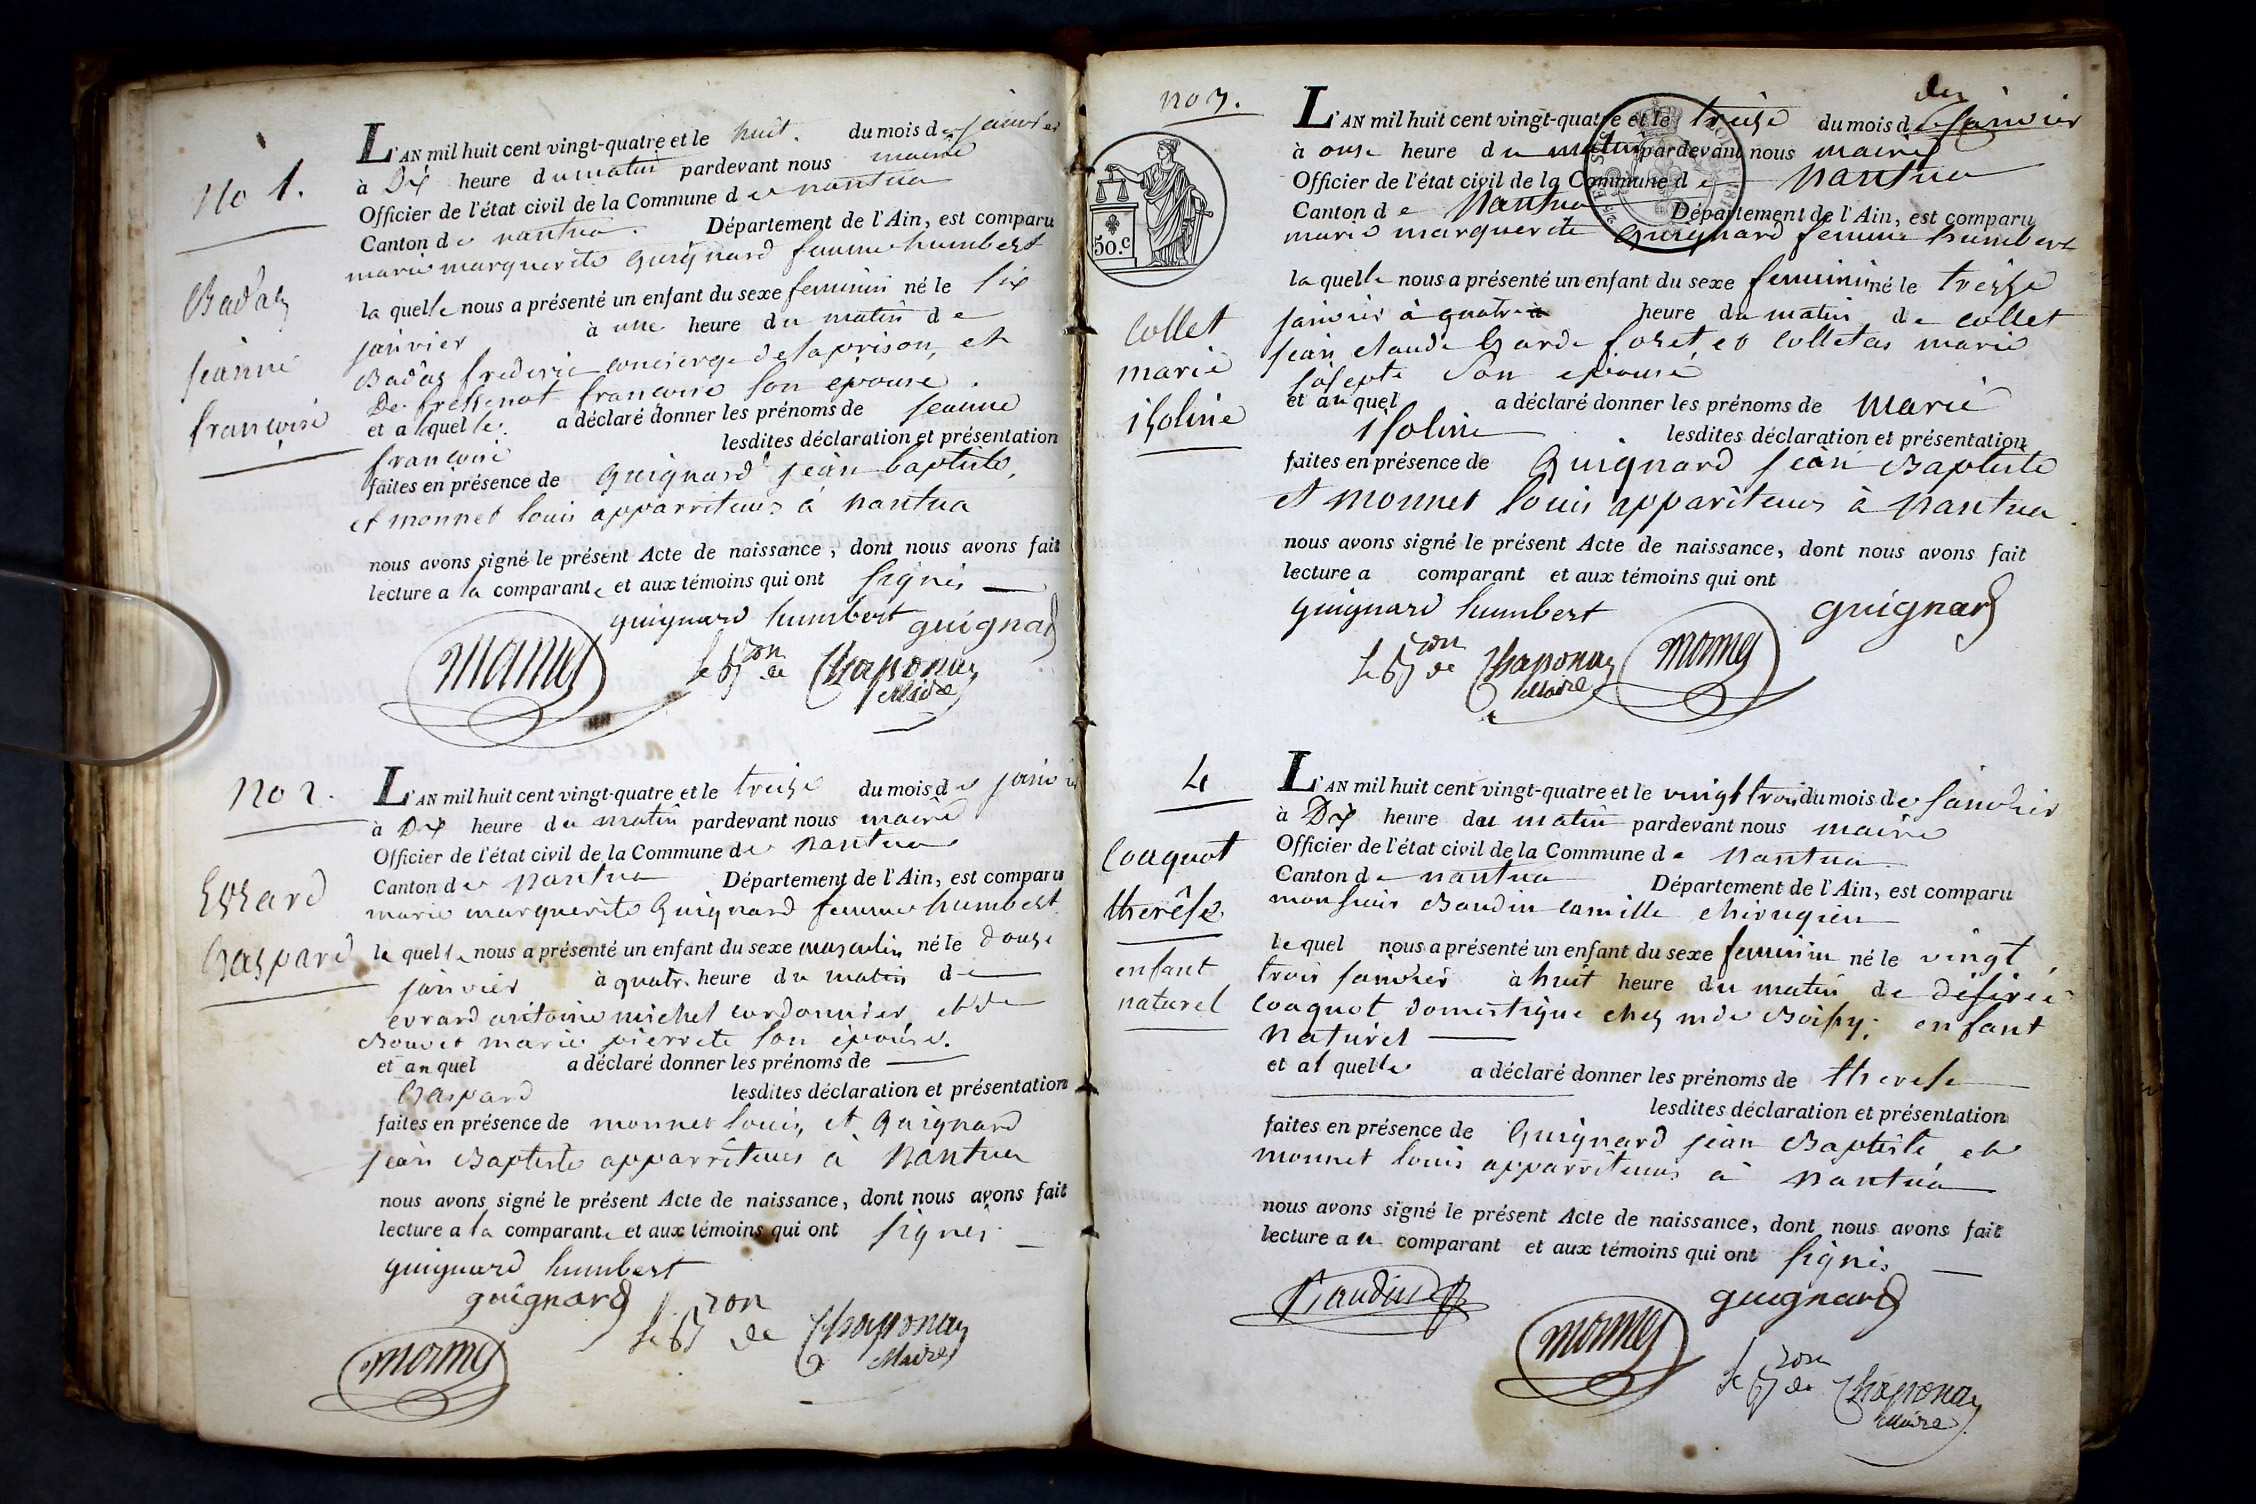 No 1.
Badaz
jeanne
francoise
L'AN mil huit cent vingt-quatre et le huit. du mois de janvier
à Dix heure du matin pardevant nous maire
Officier de l'état civil de la Commune de nantua
Canton de nantua. Département de l'Ain, est comparu
marie marguerite Guignard femme humbert
la quelle nous a présenté un enfant du sexe feminin né le six
janvier à une heure du matin de
Badaz frederic concierge de la prison, et
De fressenot francoise son epouse.
et a lquelle. a déclaré donner les prénoms de jeanne
francoise lesdites déclaration et présentation
faites en présence de Guignard jean baptiste,
et monnet louis apparriteurs à nantua
nous avons signé le présent Acte de naissance, dont nous avons fait
lecture a la comparante et aux témoins qui ont signés
guignard humbert guignard
monnet le Bon de Chaponay
Maire
No 2.
Evrard
Gaspard
L'AN mil huit cent vingt-quatre et le treize du mois de janvier
à Dix heure du matin pardevant nous maire
Officier de l'état civil de la Commune de nantua
Canton de nantua Département de l'Ain, est comparu
marie marguerite Guignard femme humbert
la quelle nous a présenté un enfant du sexe masculin né le douze
janvier à quatre heure du matin de
evrard antoine michel cordonnier et de
Bouvet marie pierrete son épouse.
et au quel a déclaré donner les prénoms de
Gaspard lesdites déclaration et présentation
faites en présence de monnet louis, et Guignard
jean Baptiste apparriteurs à Nantua
nous avons signé le présent Acte de naissance, dont nous avons fait
lecture a la comparante et aux témoins qui ont signés
guignard humbert
guignard
le Bon de Chaponay
monnet Maire
no 3.
50.c
Collet
marie
isoline
L'AN mil huit cent vingt-quatre et le treize du mois de janvier
à onze heure du matin pardevant nous maire
Officier de l'état civil de la Commune de Nantua
Canton de Nantua Département de l'Ain, est comparu
marie marguerite Guignard femme humbert
la quelle nous a présenté un enfant du sexe feminin né le treize
janvier à quatre à heure du matin de collet
jean claude Garde foret, et Colletas marie
josepte son epouse
et au quel a déclaré donner les prénoms de marie
isoline lesdites déclaration et présentation
faites en présence de Guignard jean Baptiste
et monnet louis appariteurs à Nantua.
nous avons signé le présent Acte de naissance, dont nous avons fait
lecture a comparant et aux témoins qui ont
guignard humbert guignard
le Bon de Chaponay monnet
Maire
4
Coaquot
therése
enfant
naturel
L'AN mil huit cent vingt-quatre et le vingt trois du mois de janvier
à Dix heure du matin pardevant nous maire
Officier de l'état civil de la Commune de Nantua
Canton de nantua Département de l'Ain, est comparu
monsieur Baudin camille chirugien
le quel nous a présenté un enfant du sexe feminin né le vingt
trois janvier à huit heure du matin de désirée
Coaquot domestique chez mde Boissy; enfant
naturel
et al quelle a déclaré donner les prénoms de therese
lesdites déclaration et présentation
faites en présence de Guignard jean Baptiste, et
monnet louis apparriteurs à Nantua
nous avons signé le présent Acte de naissance, dont nous avons fait
lecture au comparant et aux témoins qui ont signés
Baudin guignard
monnet
le Bon de Chaponay
Maire